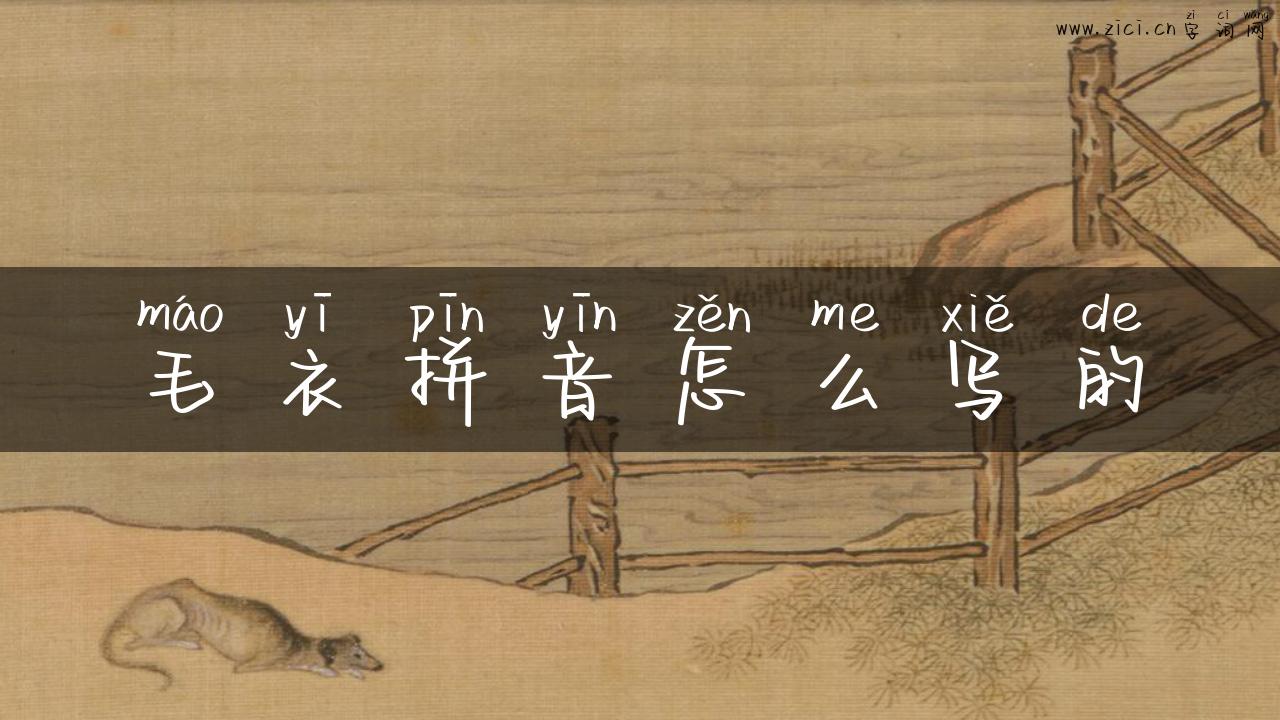 zi ci wang
www.zici.cn 字词网
máo yī pīn yīn zěn me xiě de
毛衣拼音怎么写的